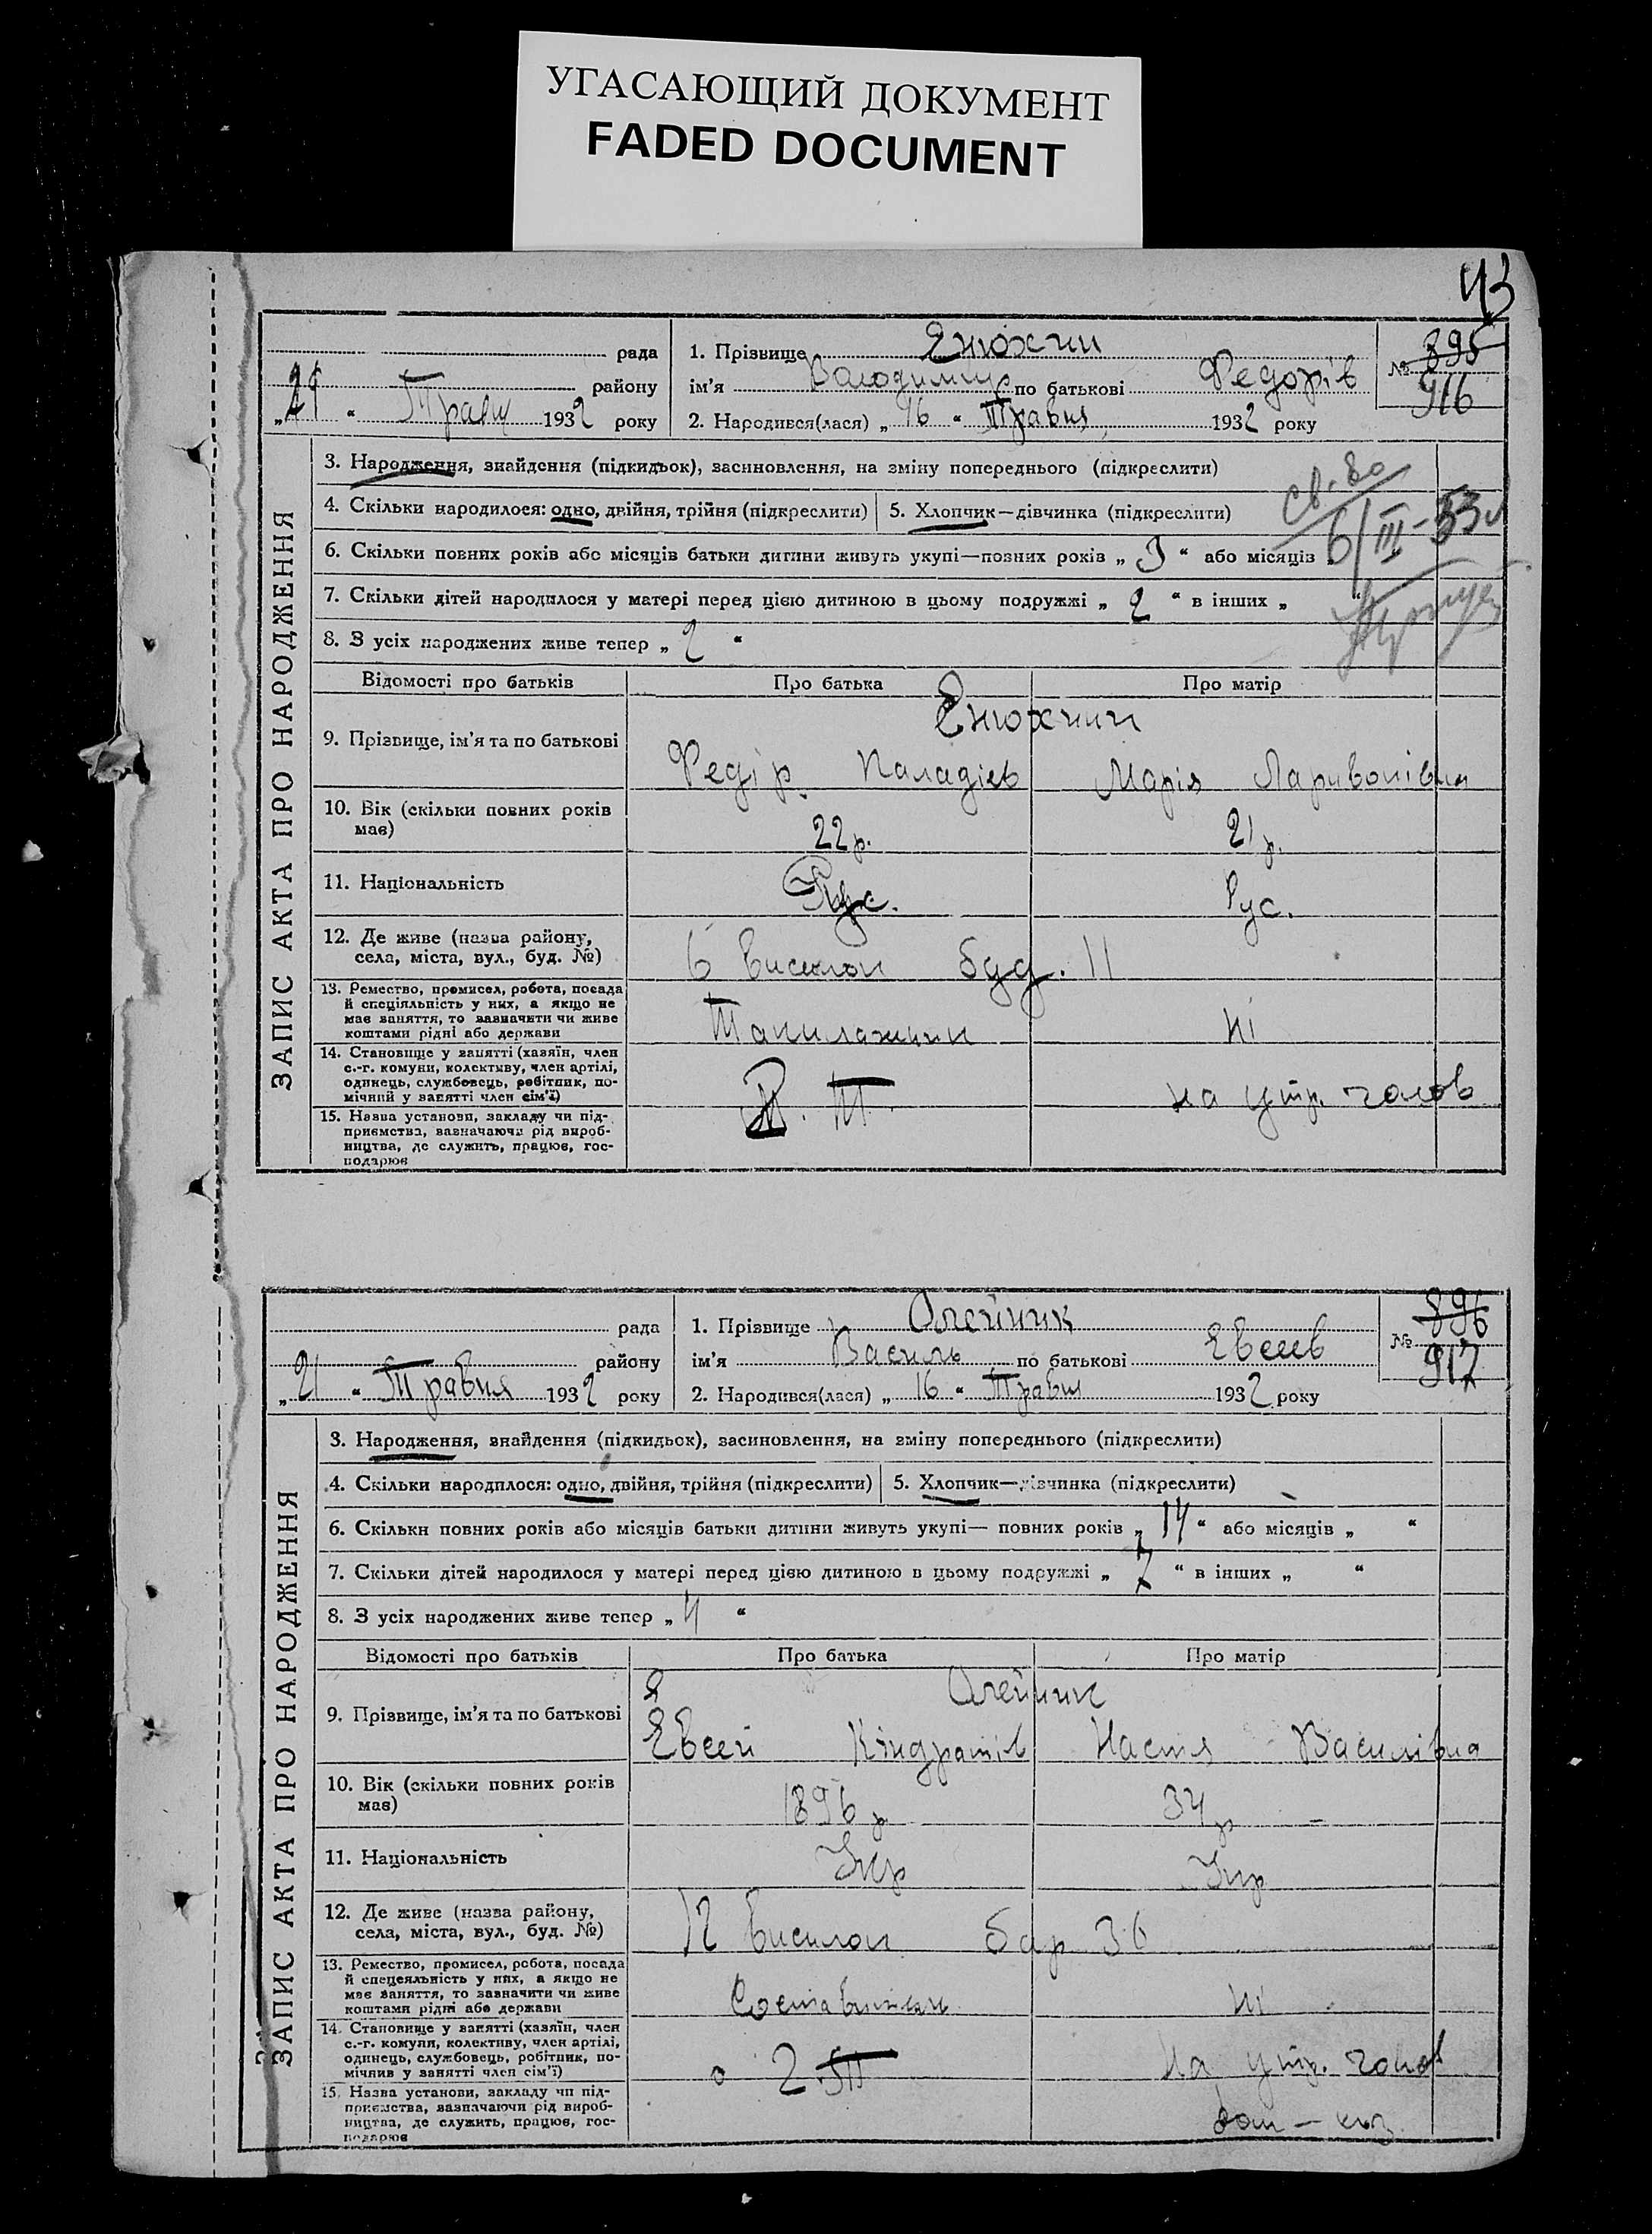 УГАСАЮЩИЙ ДОКУМЕНТ
FADED DOCUMENT
43
рада
району
„21“ Травн 1932 року
1. Прізвище Енюхин
ім’я Володимир по батькові Федорів
2. Народився(лася) „16“ Травня 1932 року
№ 895
916
ЗАПИС АКТА ПРО НАРОДЖЕННЯ
3. Народження, знайдення (підкидьок), засиновлення, на зміну попереднього (підкреслити)
4. Скільки народилося: одно, двійня, трійня (підкреслити)
5. Хлопчик—дівчинка (підкреслити)
св-во
6/III-33
6. Скільки повних років або місяців батьки дитини живуть укупі—повних років „3“ або місяців „
7. Скільки дітей народилося у матері перед цією дитиною в цьому подружжі „2“ в інших „ “
8. З усіх народжених живе тепер „2“
Відомості про батьків
Про батька
Про матір
9. Прізвище, ім’я та по батькові
Енюхин
Федір Паладієв
Марія Ларивонівна
10. Вік (скільки повних років має)
22 р.
21 р.
11. Національність
Рус.
Рус.
12. Де живе (назва району, села, міста, вул., буд. №)
6 висилок буд. 11
13. Ремество, промисел, робота, посада й спеціяльність у них, а якщо не має заняття, то зазначити чи живе коштами рідні або держави
ні
14. Становище у занятті (хазяїн, член с.-г. комуни, колективу, член артілі, одинець, службовець, робітник, помічний у занятті член сім’ї)
на утр. чолов
15. Назва установи, закладу чи підприємства, зазначаючи рід виробництва, де служить, працює, господарює
рада
району
„21“ Травня 1932 року
1. Прізвище Олейник
ім’я Василь по батькові Евсеев
2. Народився(лася) „16“ Травня 1932 року
№ 896
917
ЗАПИС АКТА ПРО НАРОДЖЕННЯ
3. Народження, знайдення (підкидьок), засиновлення, на зміну попереднього (підкреслити)
4. Скільки народилося: одно, двійня, трійня (підкреслити)
5. Хлопчик—дівчинка (підкреслити)
6. Скільки повних років або місяців батьки дитини живуть укупі— повних років „14“ або місяців „ “
7. Скільки дітей народилося у матері перед цією дитиною в цьому подружжі „7“ в інших „ “
8. З усіх народжених живе тепер „4“
Відомості про батьків
Про батька
Про матір
9. Прізвище, ім’я та по батькові
Олейник
Евсей Кіндратів
Настя Василівна
10. Вік (скільки повних років має)
1896 р
34 р
11. Національність
Укр
Укр
12. Де живе (назва району, села, міста, вул., буд. №)
12 висилок бар 36
13. Ремество, промисел, робота, посада й спецеяльність у них, а якщо не має заняття, то зазначити чи живе коштами рідні або держави
Составитель
ні
14. Становище у занятті (хазяїн, член с.-г. комуни, колективу, член артілі, одинець, службовець, робітник, помічник у занятті член сім’ї)
на утр. чолов
15. Назва установи, закладу чи підприємства, зазначаючи рід виробництва, де служить, працює, господарює